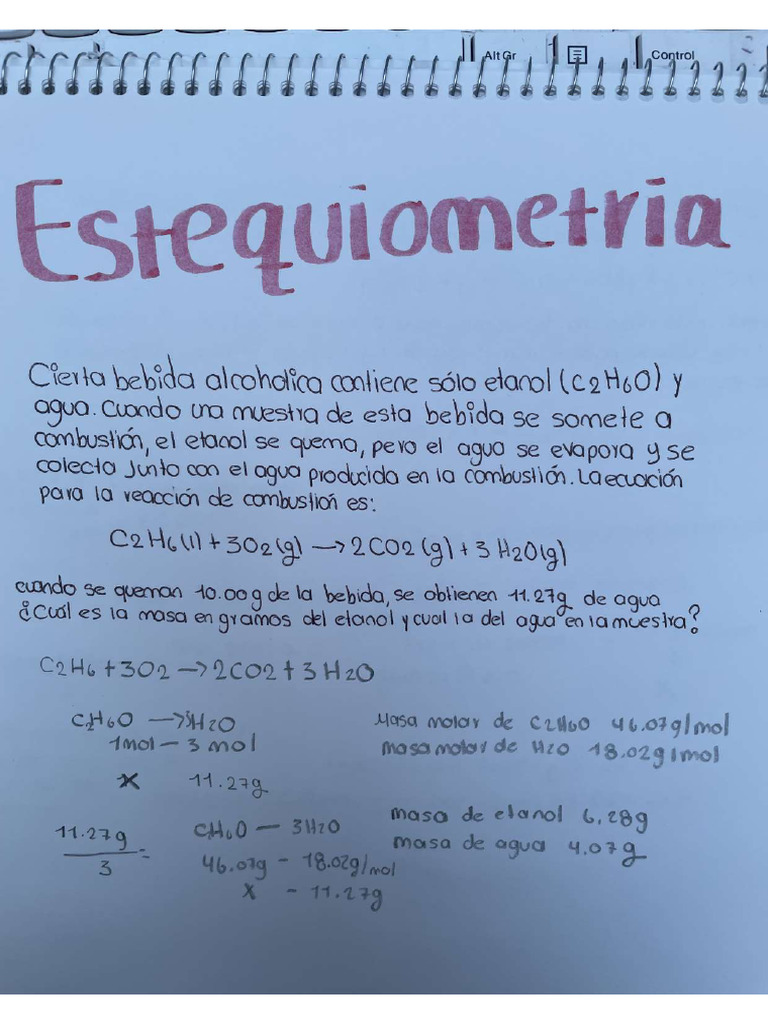 Alt Gr
Control
Estequiometria
Cierta bebida alcoholica contiene sólo etanol (C2H6O) y
agua. Cuando una muestra de esta bebida se somete a
combustión, el etanol se quema, pero el agua se evapora y se
colecta junto con el agua producida en la combustión. La ecuación
para la reacción de combustión es:
C2H6(l) + 3O2(g) → 2CO2(g) + 3H2O(g)
cuando se queman 10.00g de la bebida, se obtienen 11.27g de agua
¿Cuál es la masa en gramos del etanol y cual la del agua en la muestra?
C2H6 + 3O2 → 2CO2 + 3H2O
C2H6O → 3H2O
1mol — 3 mol
x 11.27g
Masa molar de C2H6O 46.07g/mol
masa molar de H2O 18.02g/mol
11.27g
3 =
CH6O — 3H2O
46.07g - 18.02g/mol
x - 11.27g
masa de etanol 6,28g
masa de agua 4.07g